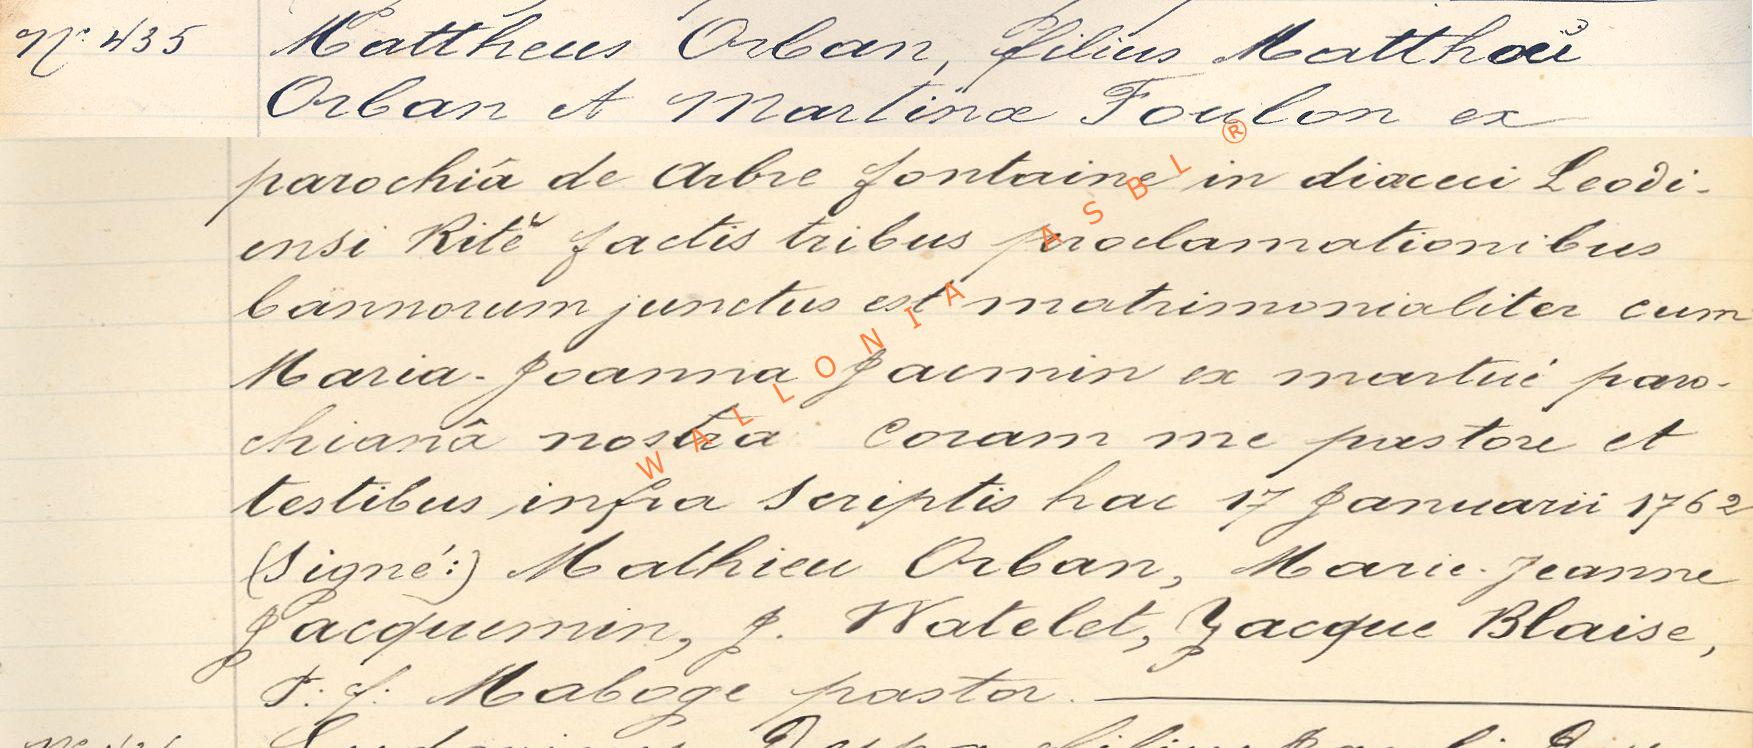 No. 435 Mattheus Orban, filius Matthaei
Orban et Martinae Foulon ex
parochiâ de Arbre fontaine in diaececi Leodi-
ensi Ritè factis tribus proclamationibus
bannorum junctus est matrimonialiter cum
Maria-Joanna Jacmin ex paro-
chianâ nostra Coram me pastore et
testibus infra scriptis hac 17 Januarii 1762
(Signé:) Mathieu Orban, Marie-Jeanne
Jacquemin, J. Watelet, Jacque Blaise,
P. J. Maboge pastor.
WALLONIA ASBL ®